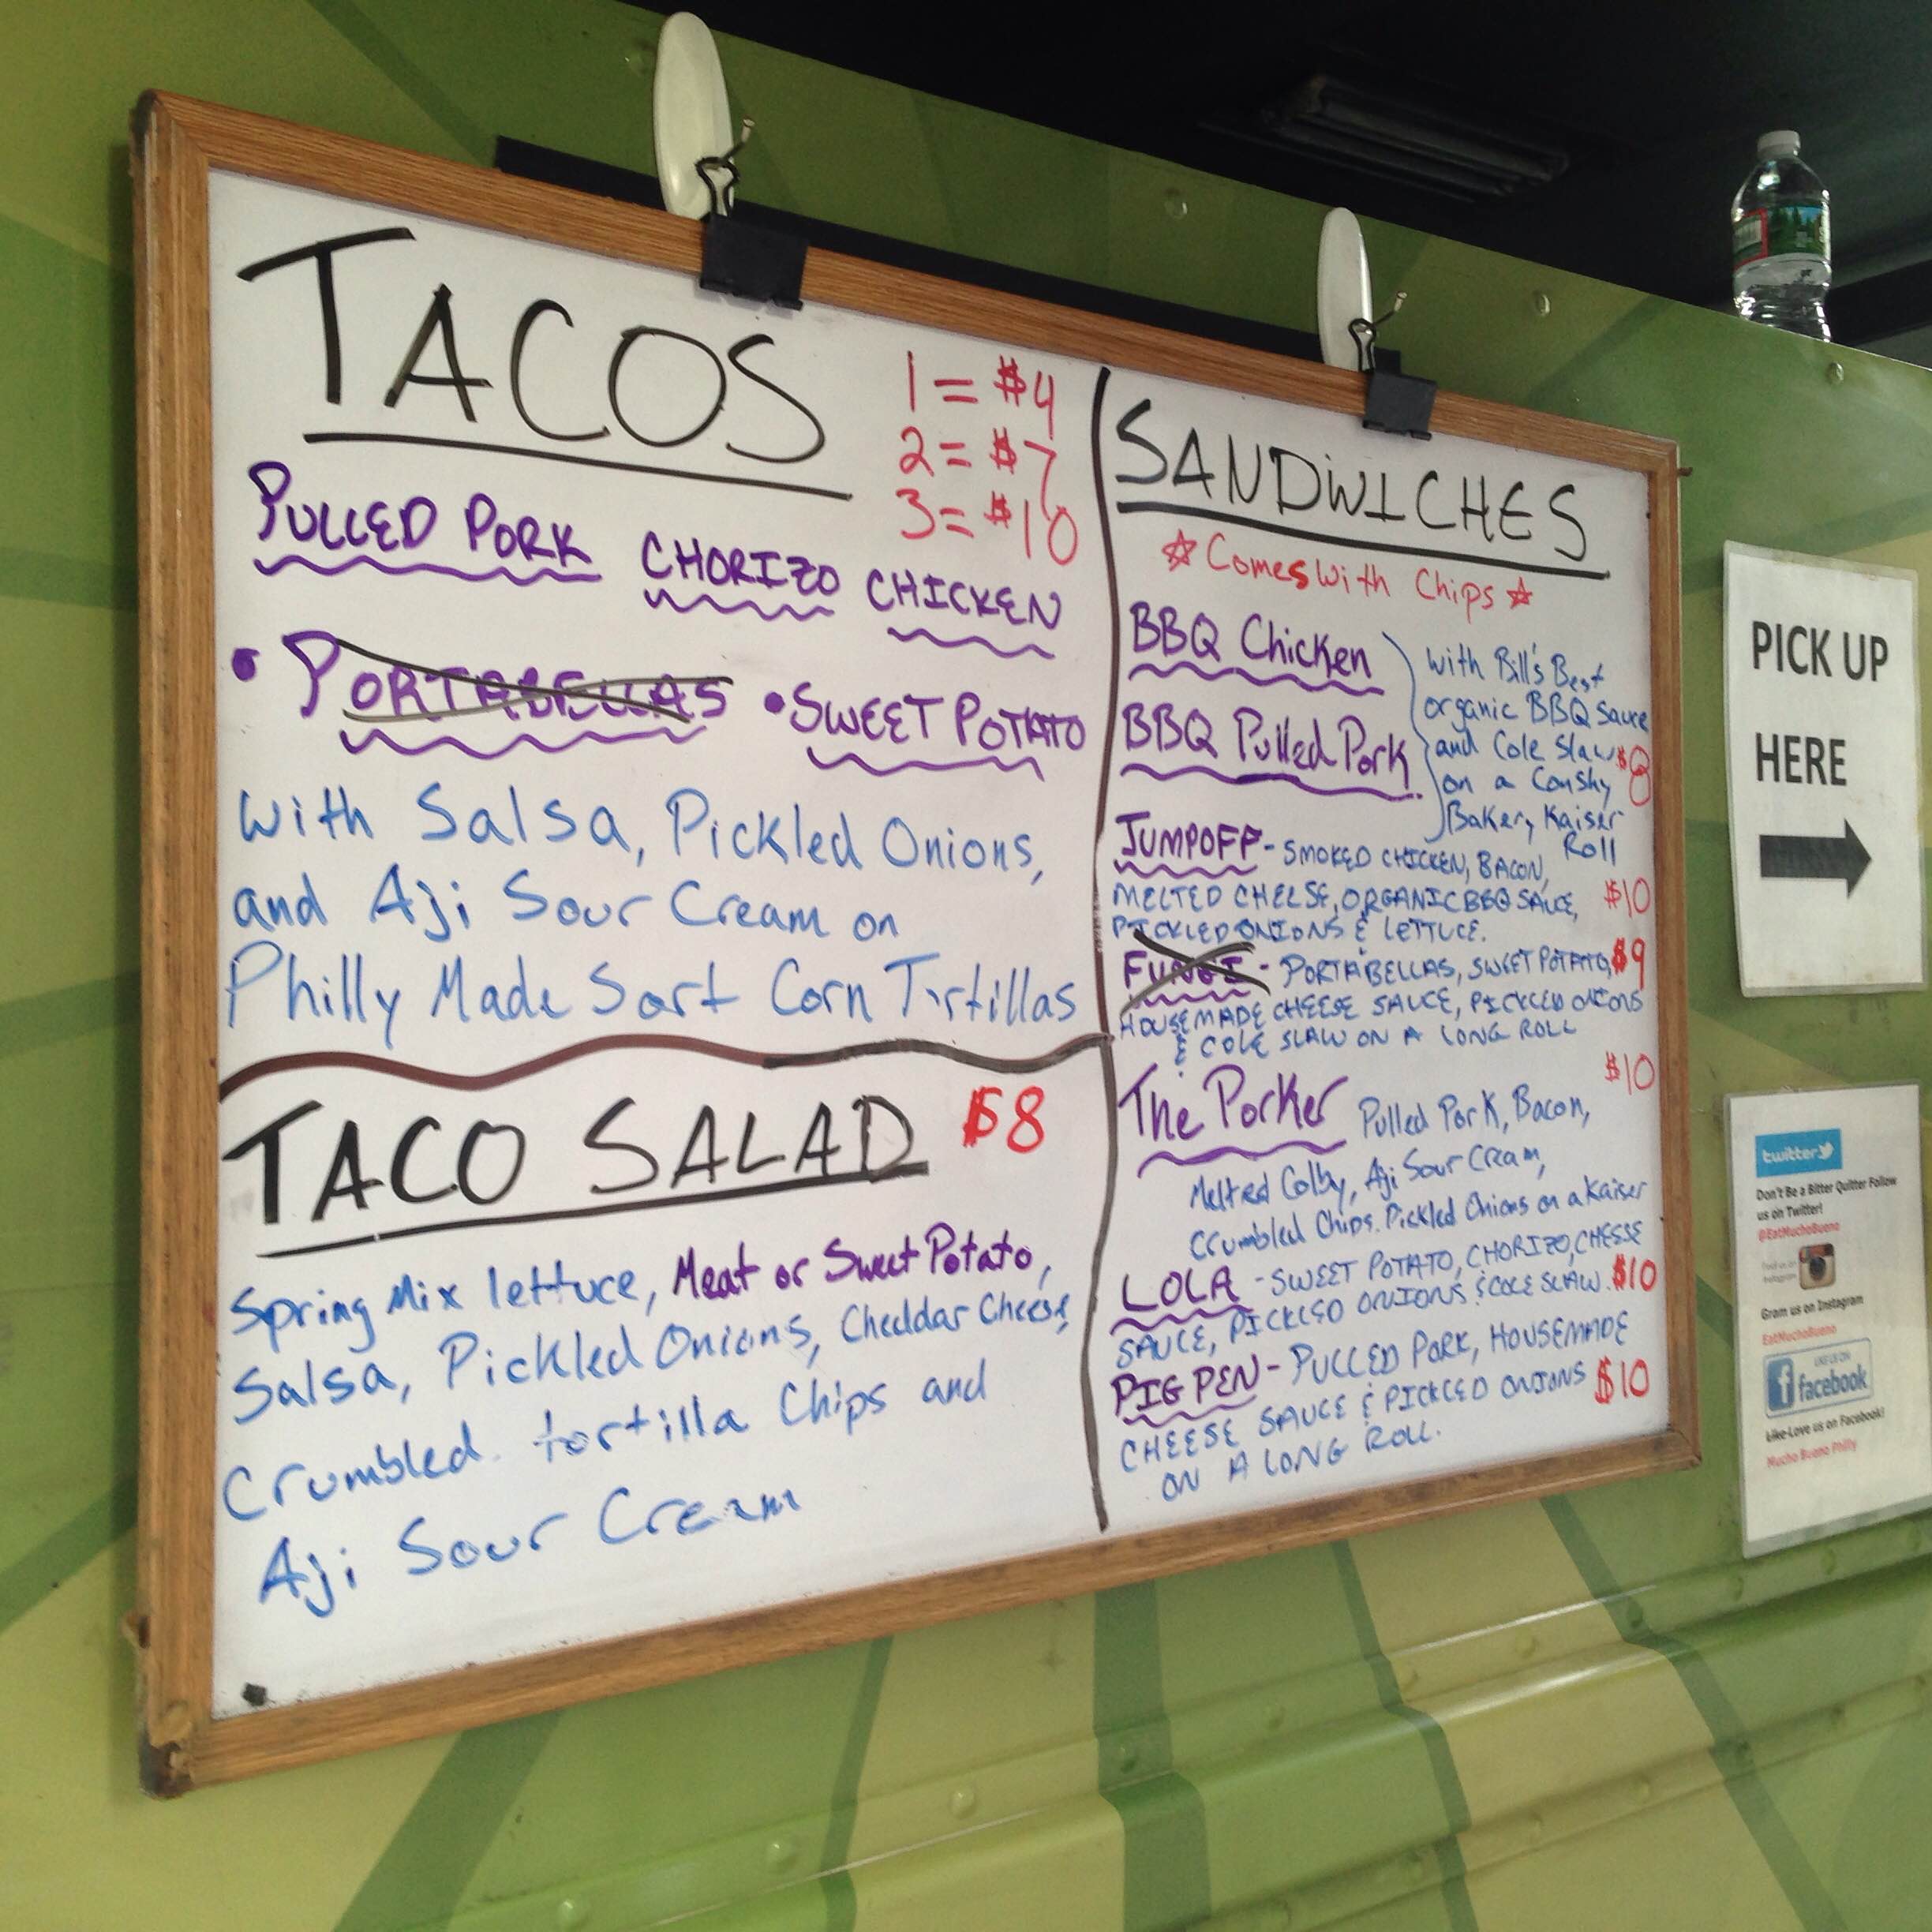 TACOS
1 = $4
2 = $7
3 = $10
PULLED PORK CHORIZO CHICKEN
• PORTABELLAS • SWEET POTATO
with Salsa, Pickled Onions,
and Aji Sour Cream on
Philly Made Sort Corn Tortillas
TACO SALAD $8
Spring Mix lettuce, Meat or Sweet Potato,
Salsa, Pickled Onions, Cheddar Cheese,
Crumbled tortilla Chips and
Aji Sour Cream
SANDWICHES
☆ Comes With Chips ☆
BBQ Chicken
BBQ Pulled Pork
with Bill's Best
organic BBQ Sauce
and Cole Slaw $8
on a Conshy
Bakery Kaiser
Roll
JUMPOFF - SMOKED CHICKEN, BACON,
MELTED CHEESE, ORGANIC BBQ SAUCE, $10
PICKLED ONIONS & LETTUCE.
FUNGI - PORTABELLAS, SWEET POTATO, $9
HOUSEMADE CHEESE SAUCE, PICKLED ONIONS
& COLE SLAW ON A LONG ROLL
$10
The Porker Pulled Pork, Bacon,
Melted Colby, Aji Sour Cream,
Crumbled Chips. Pickled Onions on a Kaiser
LOLA - SWEET POTATO, CHORIZO, CHEESE
SAUCE, PICKLED ONIONS & COLE SLAW. $10
PIG PEN - PULLED PORK, HOUSEMADE
CHEESE SAUCE & PICKLED ONIONS $10
ON A LONG ROLL.
PICK UP
HERE
twitter
Don't Be a Bitter Quitter Follow
us on Twitter!
@EatMuchoBueno
Find us on
Instagram
Gram us on Instagram
EatMuchoBueno
LIKE US ON
facebook
Like Love us on Facebook!
Mucho Bueno Philly